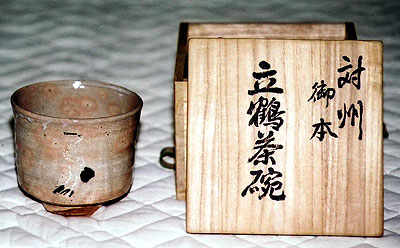 対州
御本
立鶴茶碗